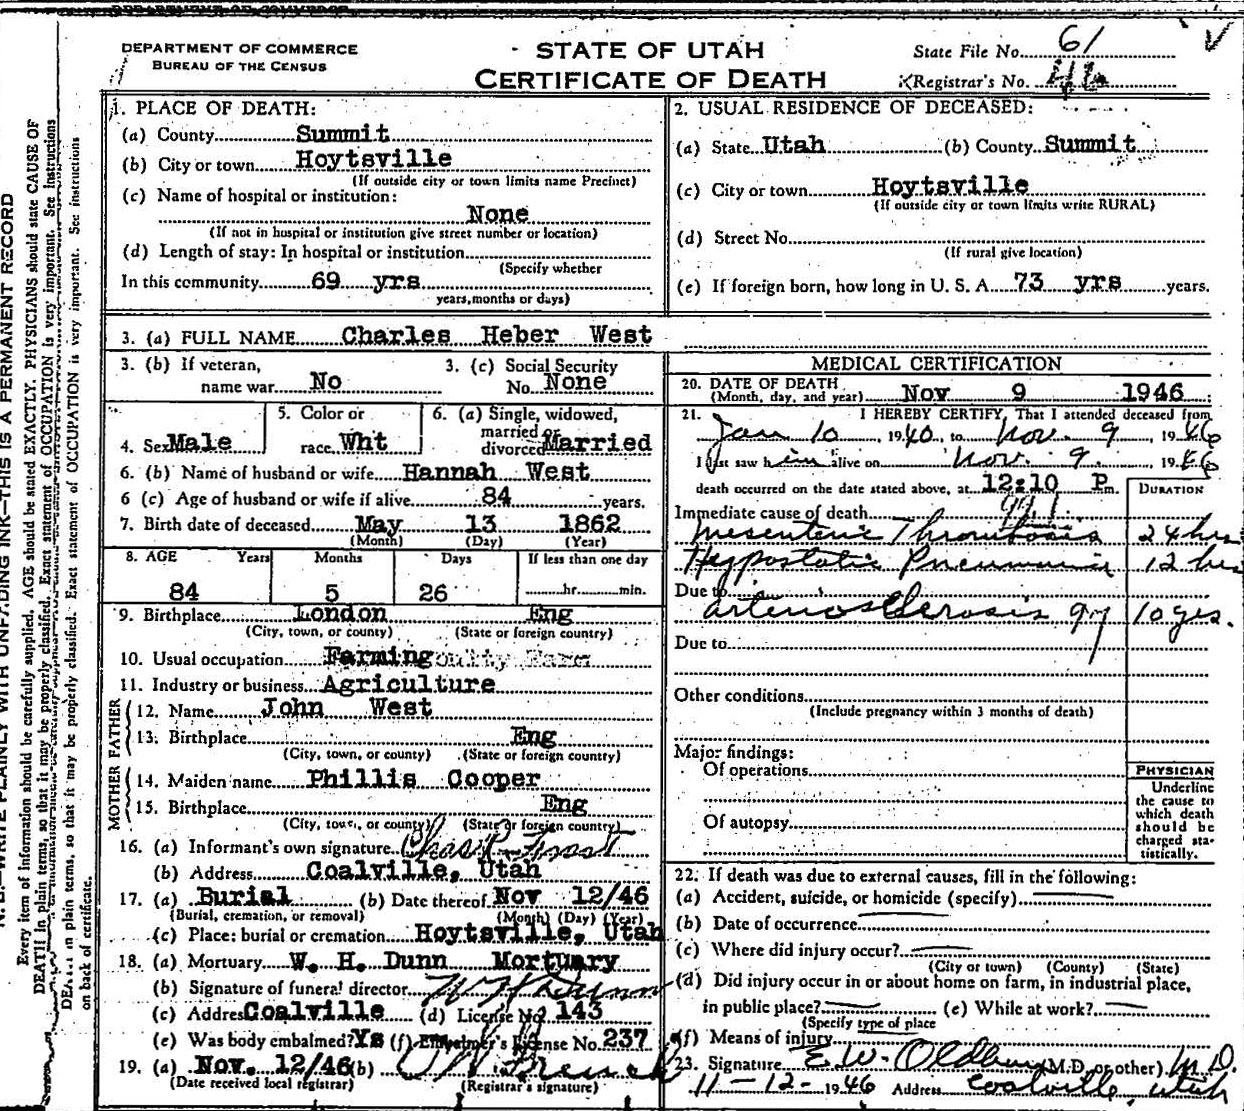 DEPARTMENT OF COMMERCE
BUREAU OF THE CENSUS
STATE OF UTAH
CERTIFICATE OF DEATH
State File No. 61
Registrar's No.
1. PLACE OF DEATH:
(a) County Summit
(b) City or town Hoytsville
(If outside city or town limits name Precinct)
(c) Name of hospital or institution:
None
(If not in hospital or institution give street number or location)
(d) Length of stay: In hospital or institution
(Specify whether
In this community 69 yrs
years, months or days)
2. USUAL RESIDENCE OF DECEASED:
(a) State Utah (b) County Summit
(c) City or town Hoytsville
(If outside city or town limits write RURAL)
(d) Street No.
(If rural give location)
(e) If foreign born, how long in U. S. A. 73 yrs years.
3. (a) FULL NAME Charles Heber West
3. (b) If veteran,
name war No
3. (c) Social Security
No. None
4. Sex Male
5. Color or
race Wht
6. (a) Single, widowed,
married or
divorced Married
6. (b) Name of husband or wife Hannah West
6 (c) Age of husband or wife if alive 84 years.
7. Birth date of deceased May 13 1862
(Month) (Day) (Year)
8. AGE Years Months Days If less than one day
84 5 26 hr. min.
9. Birthplace London Eng
(City, town, or county) (State or foreign country)
10. Usual occupation Farming
11. Industry or business Agriculture
FATHER
12. Name John West
13. Birthplace Eng
(City, town, or county) (State or foreign country)
MOTHER
14. Maiden name Phillis Cooper
15. Birthplace Eng
(City, town, or county) (State or foreign country)
16. (a) Informant's own signature Chas R Frost
(b) Address Coalville, Utah
17. (a) Burial (b) Date thereof Nov 12/46
(Burial, cremation, or removal) (Month) (Day) (Year)
(c) Place: burial or cremation Hoytsville, Utah
18. (a) Mortuary W. H. Dunn Mortuary
(b) Signature of funeral director W H Dunn
(c) Addres Coalville (d) License No. 143
(e) Was body embalmed? Ys (f) Embalmer's License No. 237
19. (a) Nov. 12/46 (b)
(Date received local registrar) (Registrar's signature)
MEDICAL CERTIFICATION
20. DATE OF DEATH
(Month, day, and year) Nov 9 1946
21. I HEREBY CERTIFY, That I attended deceased from
Jan 10, 1940, to Nov. 9, 1946
I last saw him alive on Nov. 9, 1946
death occurred on the date stated above, at 12:10 P m.
DURATION
Immediate cause of death
Mesenteric Thrombosis 24 hrs
Hypostatic Pneumonia 12 hrs
Due to
arteriosclerosis 97 10 yrs.
Due to
Other conditions
(Include pregnancy within 3 months of death)
Major findings:
Of operations
Of autopsy
PHYSICIAN
Underline
the cause to
which death
should be
charged sta-
tistically.
22. If death was due to external causes, fill in the following:
(a) Accident, suicide, or homicide (specify)
(b) Date of occurrence
(c) Where did injury occur?
(City or town) (County) (State)
(d) Did injury occur in or about home on farm, in industrial place,
in public place? (e) While at work?
(Specify type of place
(f) Means of injury
23. Signature E. W. Oldham (M.D. or other) M.D.
11-12-1946 Address Coalville, Utah
N. B.—WRITE PLAINLY WITH UNFADING INK—THIS IS A PERMANENT RECORD
Every item of information should be carefully supplied. AGE should be stated EXACTLY. PHYSICIANS should state CAUSE OF
DEATH in plain terms, so that it may be properly classified. Exact statement of OCCUPATION is very important. See Instructions
DEATH in plain terms, so that it may be properly classified. Exact statement of OCCUPATION is very important. See instructions
on back of certificate.